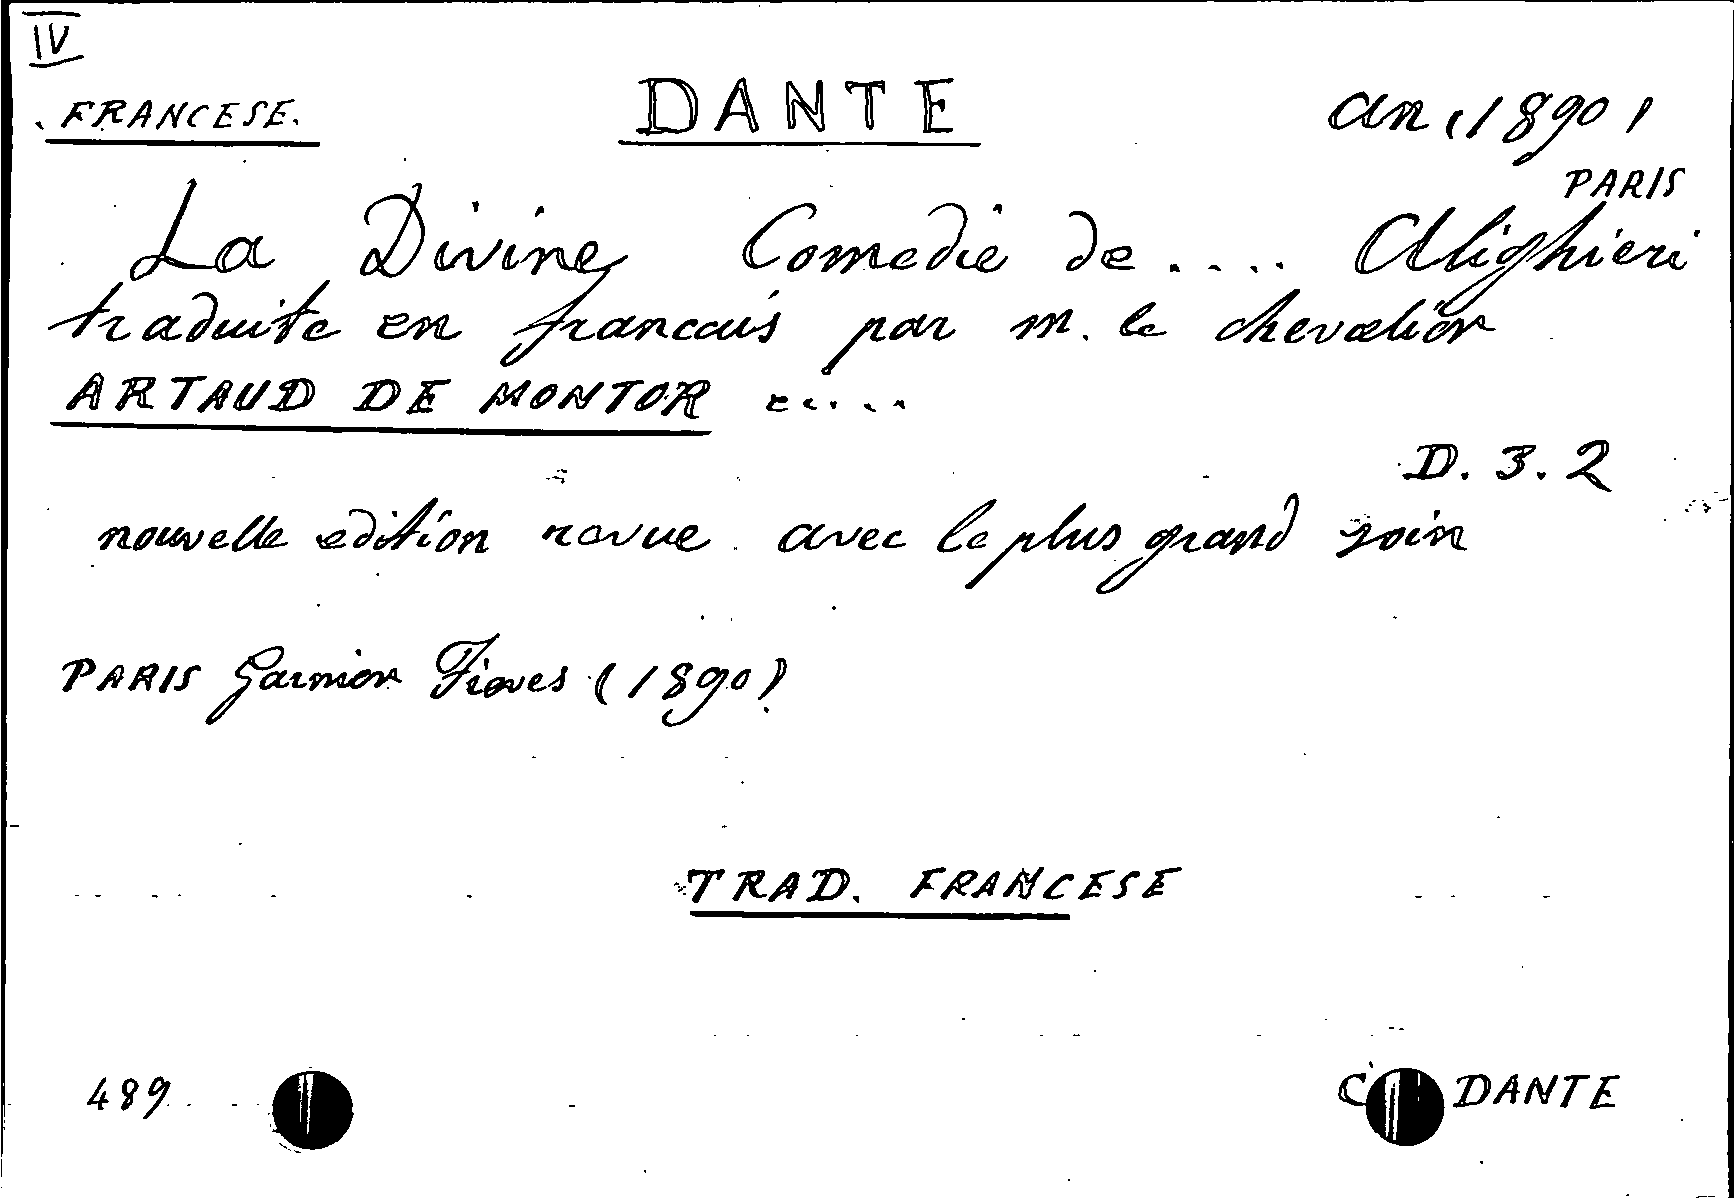 IV
FRANCESE. DANTE an. (1890)
PARIS
La Divine Comedie de .... Alighieri
traduite en francais par m. le chevalier
ARTAUD DE MONTOR e.....
D. 3. 2
nouvelle edition revue avec le plus grand soin
PARIS Garnier Freres (1890)
TRAD. FRANCESE
489 DANTE